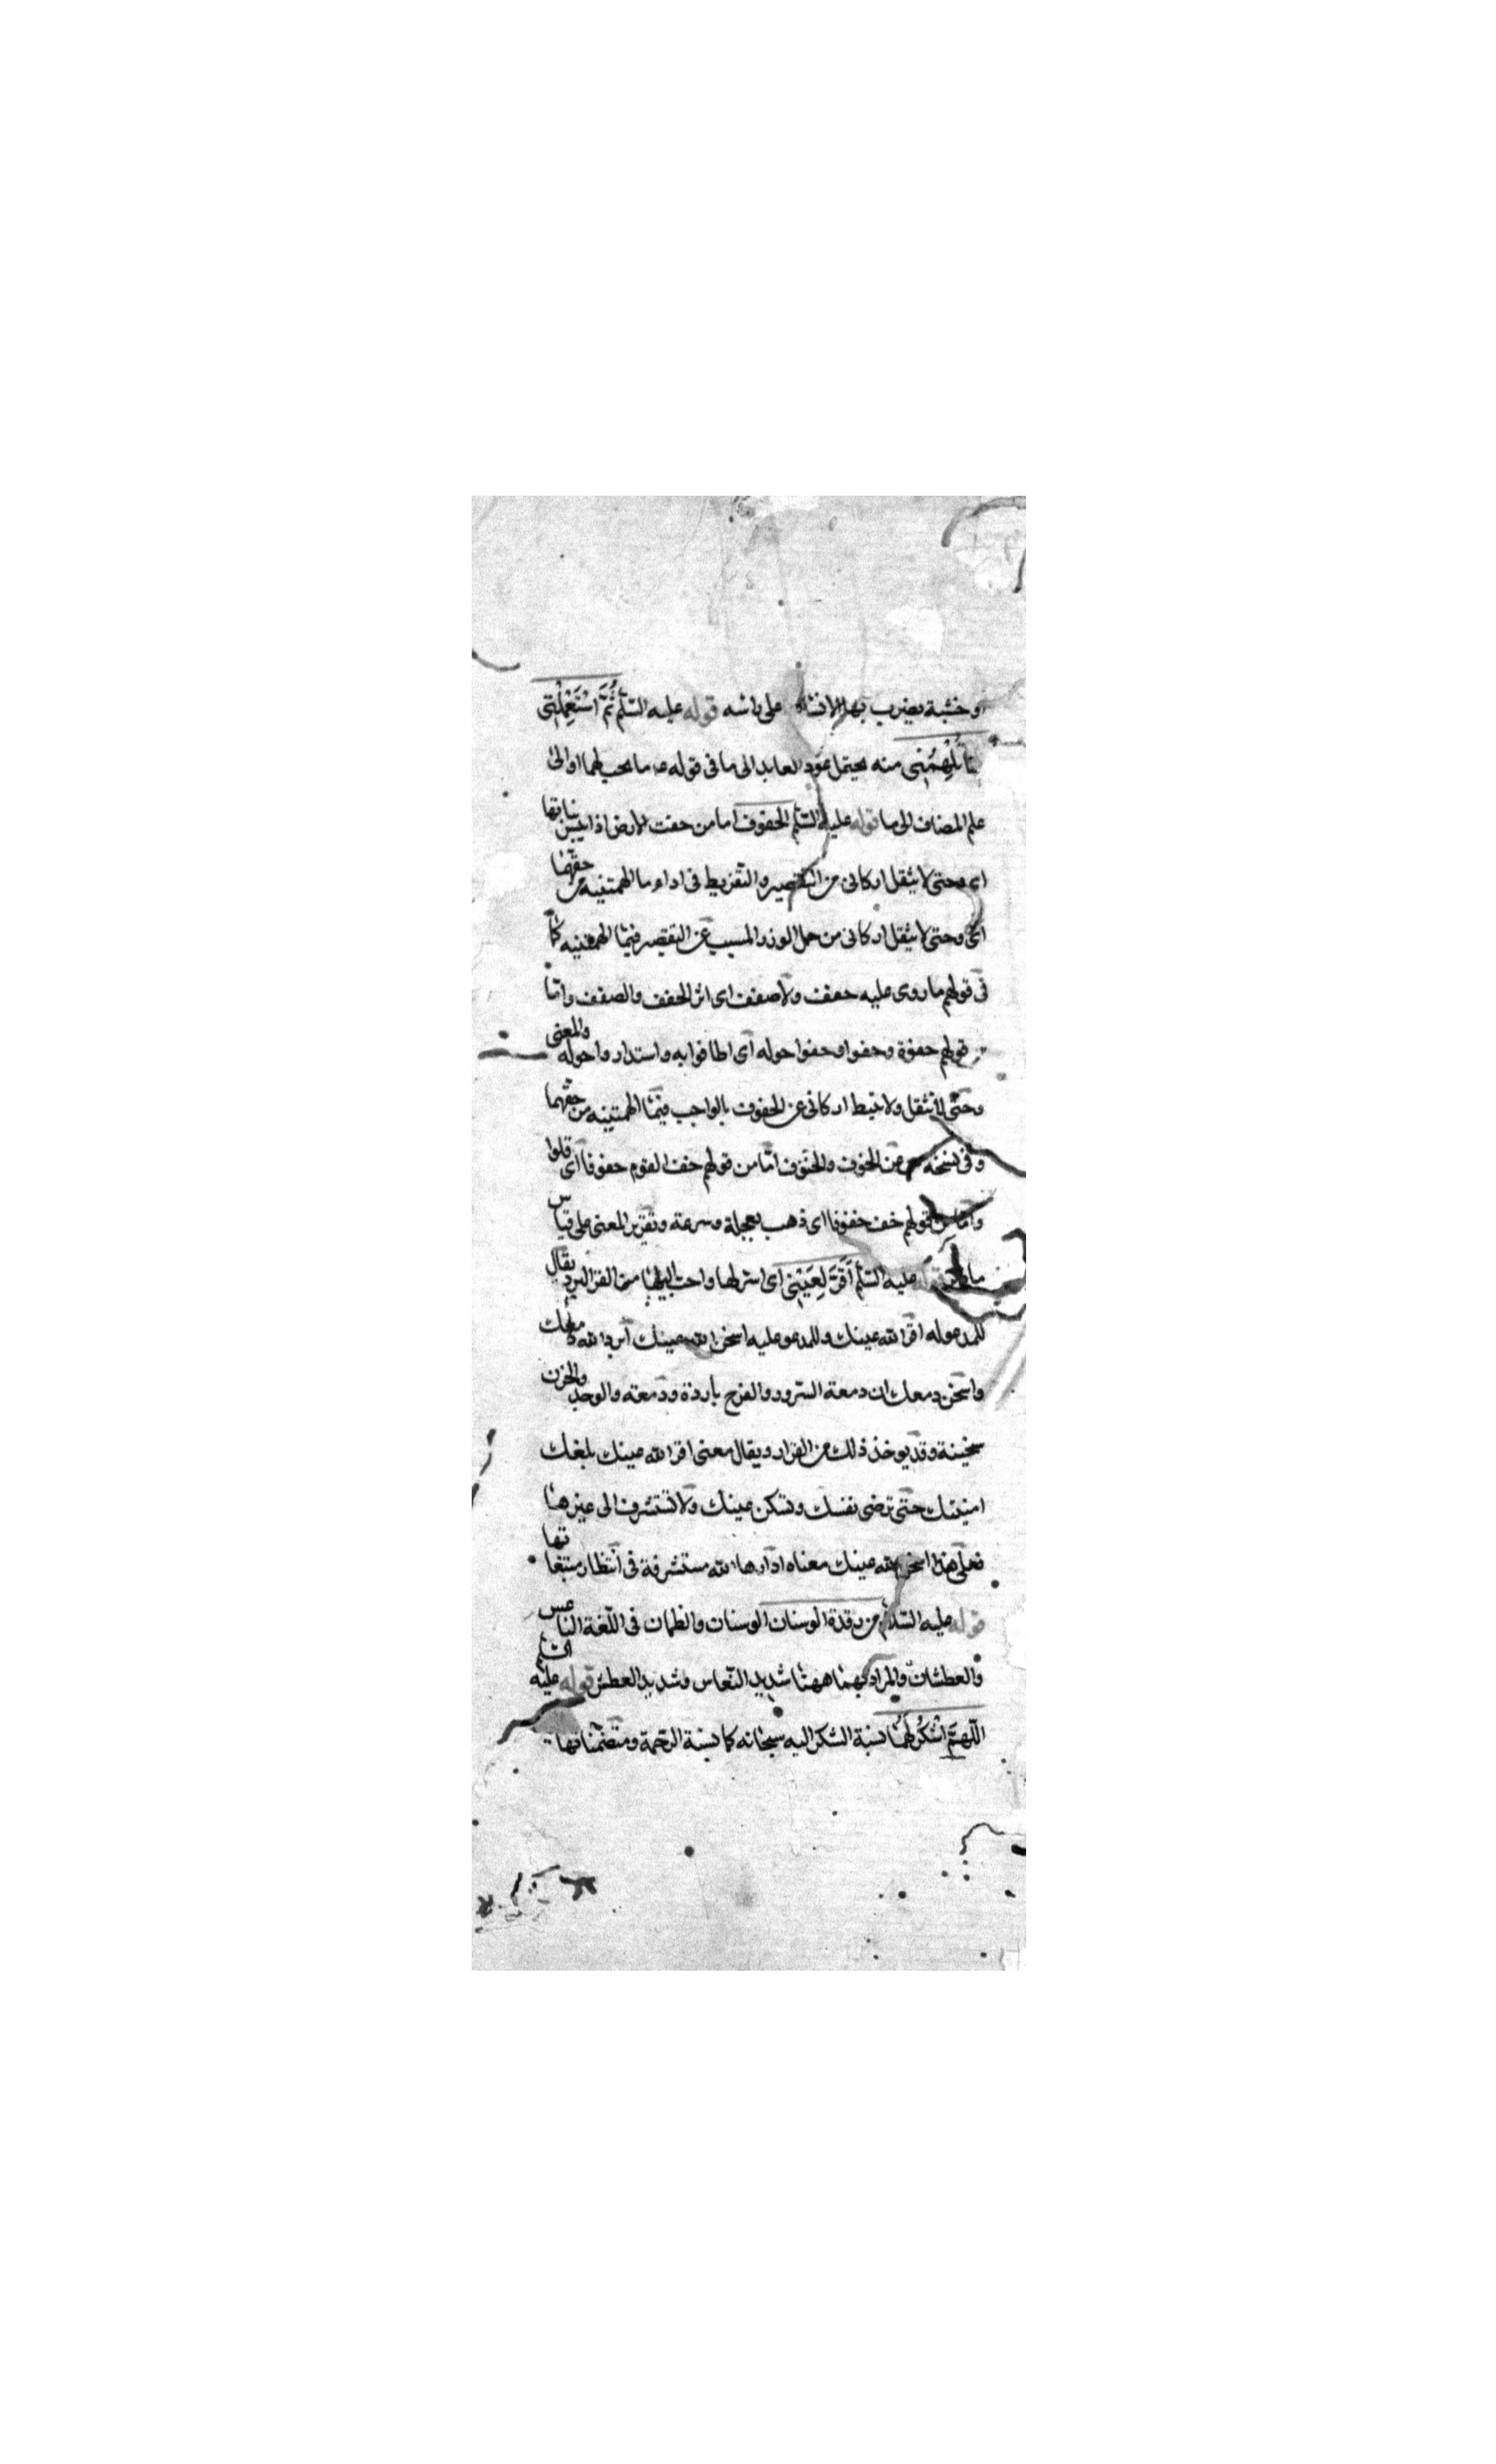 او خشبة يضرب بها الانسان على راسه قوله عليه السّلم ثُمَّ اسْتَعْمِلْنى
بما تُلْهِمُنى منه يحتمل عود العايد الى ما فى قوله ع ما يجب لهما او الى
علم المضاف الى ما قوله عليه السّلم الحفوف اما من حفت الارض اذا يبس نباتها
اى وحتى لا يثقل اركانى عن التقصير والتفريط فى اداء ما الهمتنيه من حقّهما
اى وحتى لا يثقل اركانى من حمل الوزر المسبب عن التقصير فيما الهمتنيه كما
فى قولهم ما روى عليه حفف ولا ضفف اى اثر الحفف والضفف وامّا
من قولهم حفوة وحفوا وحفوا حوله اى اطافوا به واستداروا حوله والمعنى
وحتّى لا تثقل ولا تثبط اركانى عن الحفوف بالواجب فيما الهمتنيه من حقّهما
وفى نسخه عن الخوف والخفوف امّا من قولهم خف القوم خفوفا اى قلوا
وامّا من قولهم خف خفوفا اى ذهب بعجلة وسرعة وتقرير المعنى على قياس
ما قوله عليه السّلم اَقَرَّ لِعَيْنى اى اسرلها واحب اليها من القر البرد يقال
للمدعو له اقر الله عينك وللمدعو عليه اسخن الله عينك اى ابرد الله دمعك
واسخن دمعك ان دمعة السّرور والفرح باردة ودمعة والوجد والحزن
سخينة وقد يوخذ ذلك من القرار ويقال معنى اقر الله عينك بلغك
امنيتك حتى ترضى نفسك وتسكن عينك ولا تستشرف الى غيرها
فعلى هذا اسخن الله عينك معناه ادارها الله مستشرفة فى انتظار متبغاتها
قوله عليه السّلام من رقدة الوسنان الوسنان والظمان فى اللّغة الناعس
والعطشان والمراد بهما ههنا شديد النّعاس وشديد العطش قوله عليه السّلم
اللّهمَّ اشْكُرْ لَهُما نسبة الشكر اليه سبحانه كما نسبة الرّحمة ومتضمّناتها